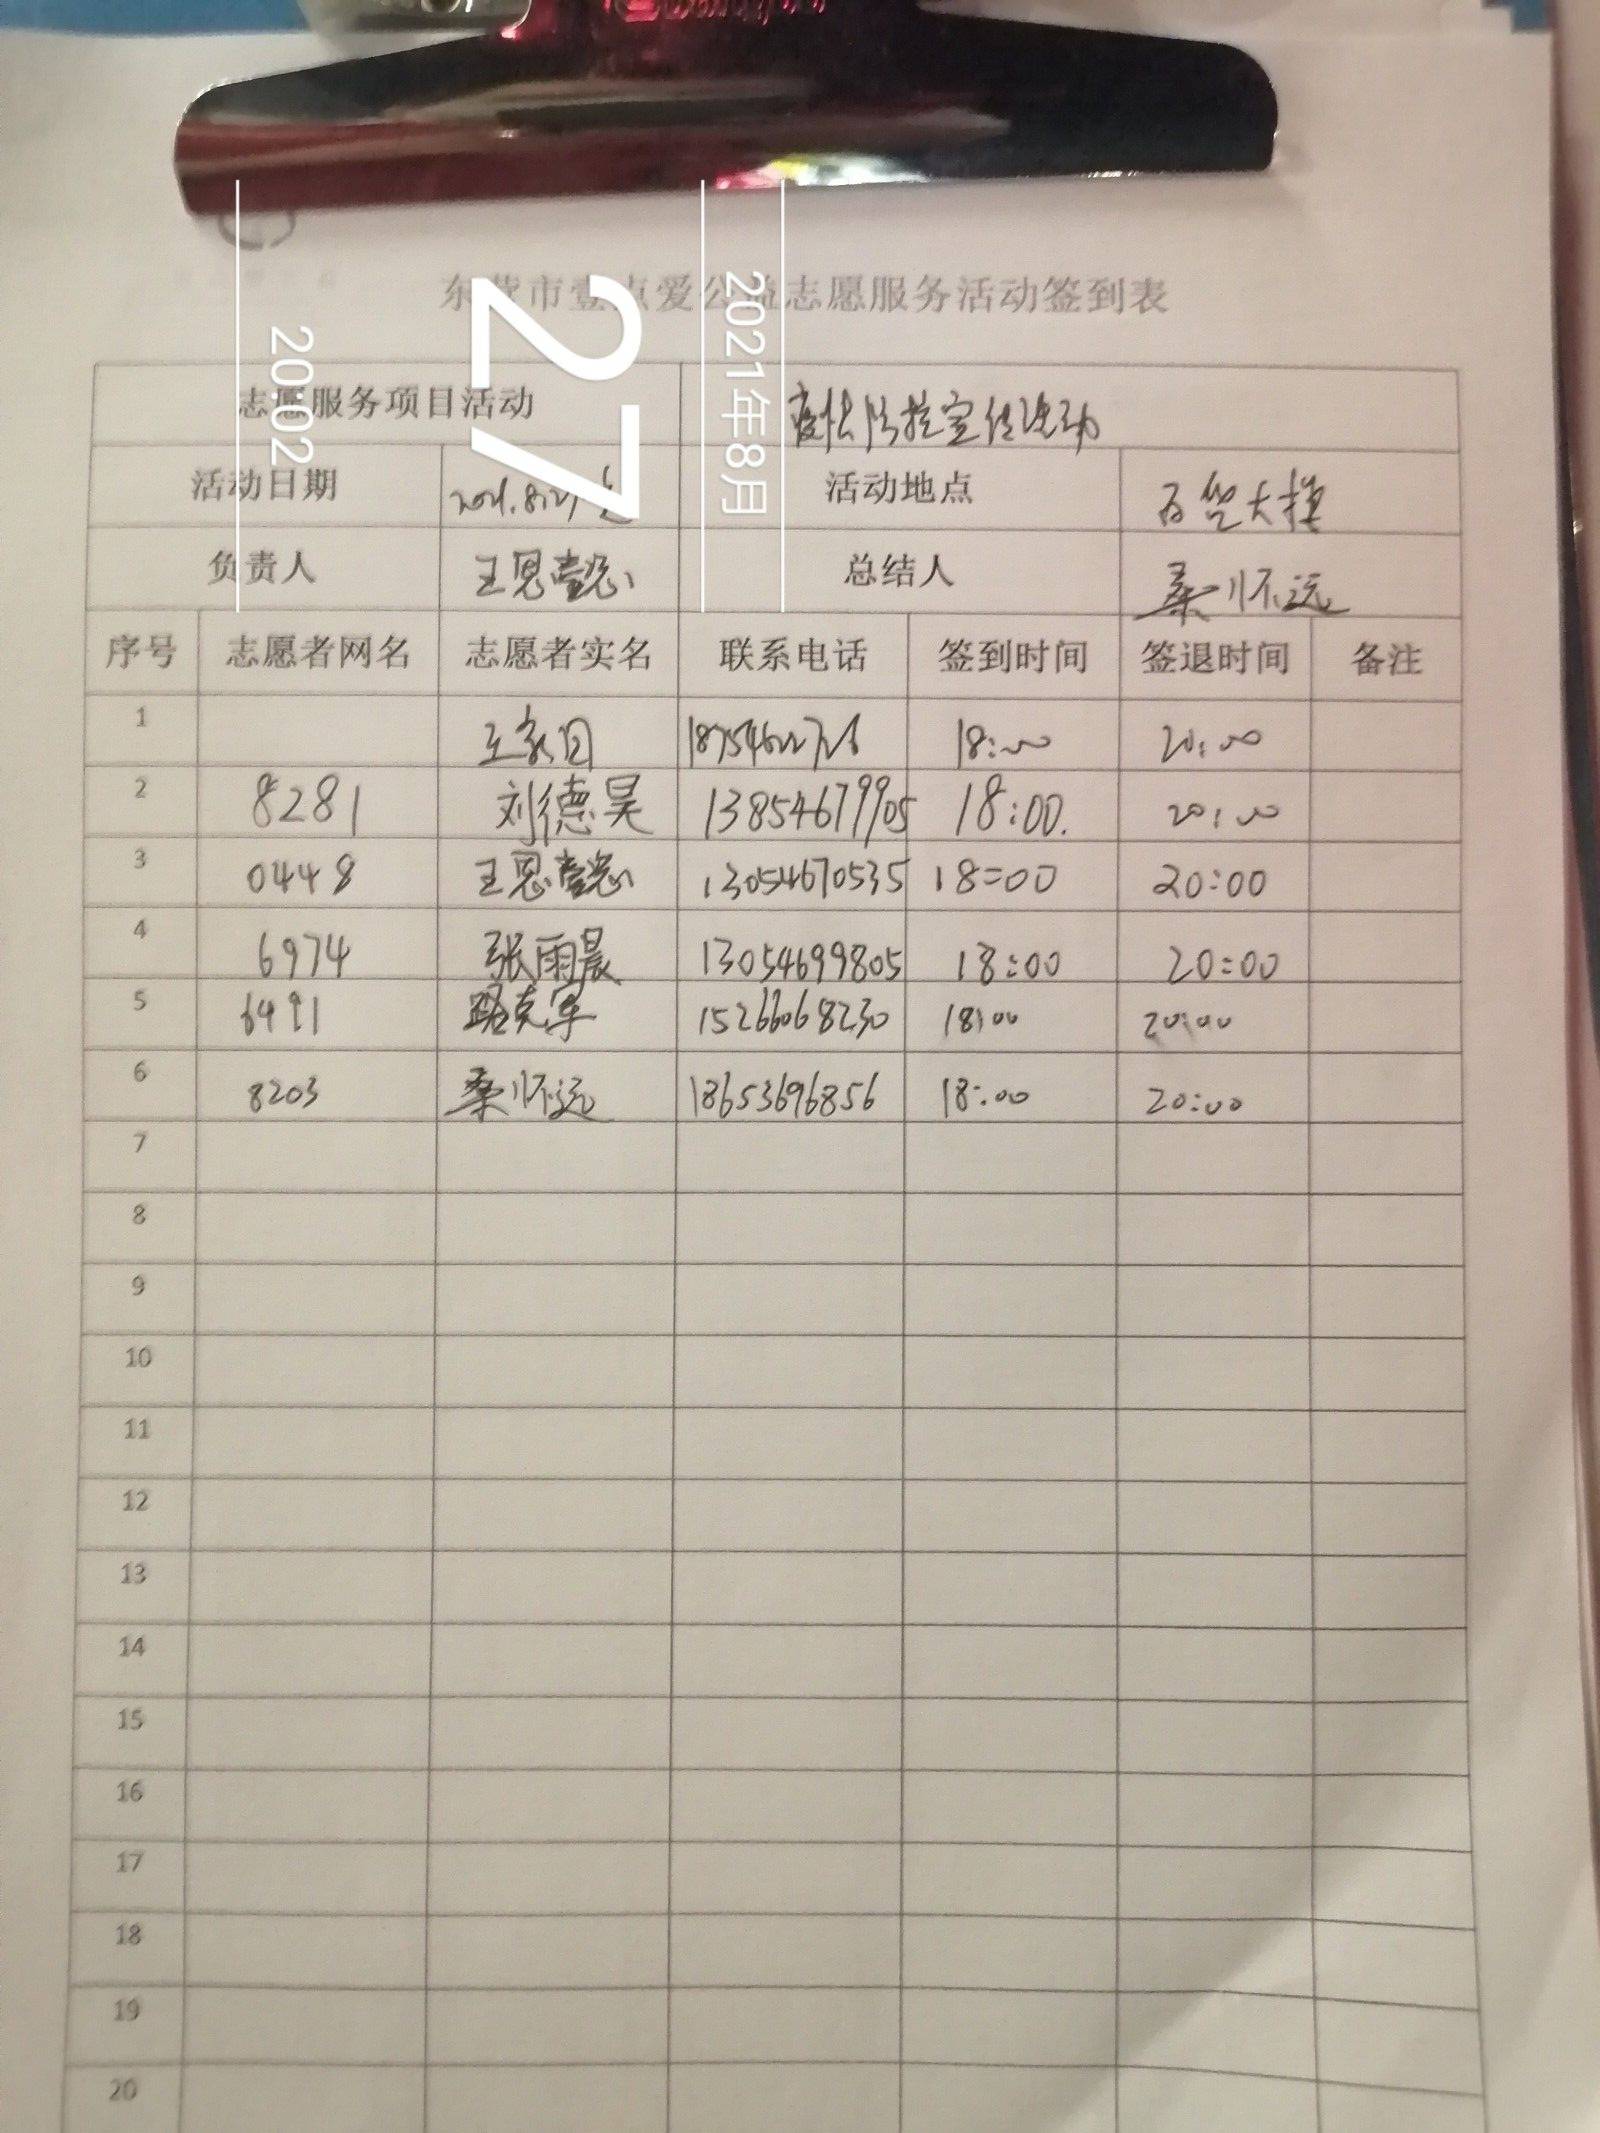 东营市壹点爱公益志愿服务活动签到表
20:02
27
2021年8月
志愿服务项目活动 疫情防控宣传活动
活动日期 2021.8.27 活动地点 百货大楼
负责人 王恩壹 总结人 桑怀远
序号 志愿者网名 志愿者实名 联系电话 签到时间 签退时间 备注
1 18:00 20:00
2 8281 刘德昊 13854679905 18:00. 20:00
3 0448 王恩壹 13054670535 18:00 20:00
4 6974 张雨晨 13054699805 18:00 20:00
5 6491 路克军 15266068230 18:00 20:00
6 8203 桑怀远 18653696856 18:00 20:00
7
8
9
10
11
12
13
14
15
16
17
18
19
20